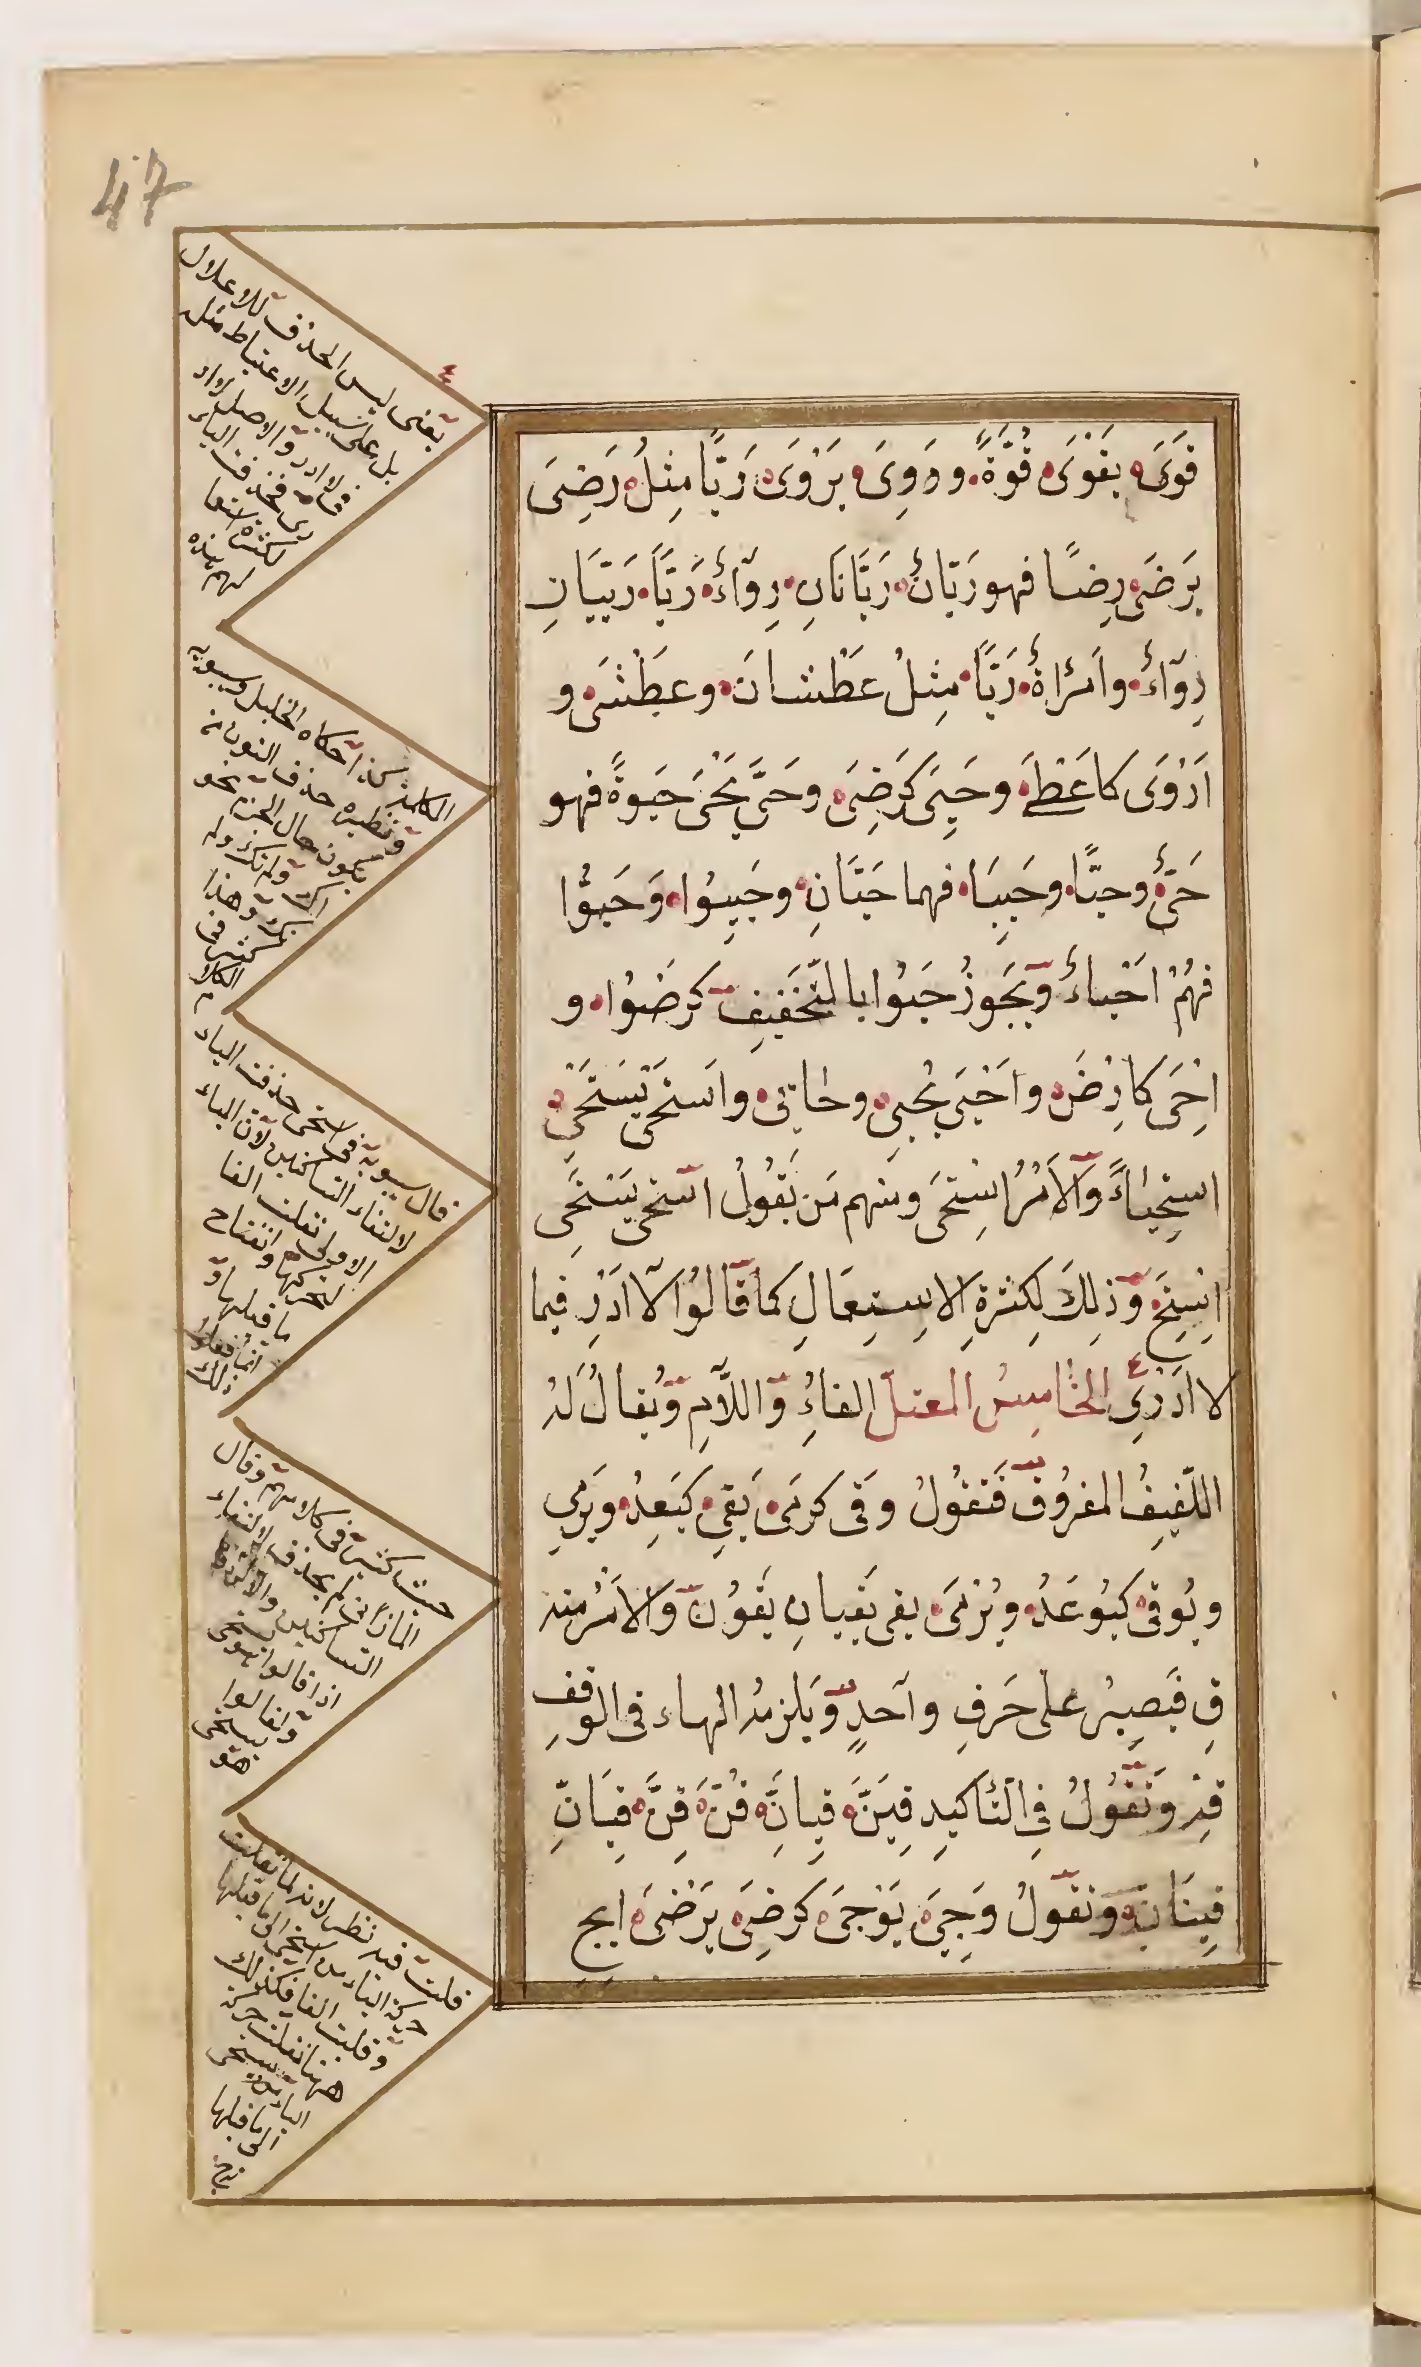 قَوِىَ يَقْوَى قُوَّةً وَرَوِىَ يَرْوَى رَيًّا مِثْلُ رَضِىَ
يَرْضَى رِضًا فهو رَيَّانُ رَيَّانَانِ رِوَآءٌ رَيَّا رَيَّيَانِ
رِوَآءٌ وامْرَاةٌ رَيَّا مِثْلُ عَطْشانَ وعَطْشَى و
اَرْوَى كاَعْطَى وحَيِىَ كَرَضِىَ وحَىَّ يَحْيَى حَيوةً فهو
حَىٌّ وحيَّا وحَيِيَا فهما حَيَّانِ وحَيِيُوا وَحَيُّوا
فَهُمْ اَحْياءٌ وَيَجُوزُ حَيُوا بالتَّخْفِيفِ كَرَضُوا و
اِحْىَ كارْضَ واَحْيَى يُحْيِى وحايى واسْتَحْيَى يَسْتَحْيِى
اسْتِحْيَاءً وَالاَمْرُ اسْتَحْىِ ومنهم مَن يَقُولُ اسْتَحَى يَسْتَحِى
اِسْتَحِ وَذلِكَ لِكَثْرَةِ الاِسْتِعمَالِ كما قَالُوا لا اَدْرِ فِيما
لا اَدْرِى الخامِسُ المعتلّ الفاءُ وَاللّامِ وَيُقالُ لَهُ
اللَّفِيفُ المفرُوقُ فَتَقُولُ وَقى كرمَى يَقِى كَيَعِدُ ويَرمِى
ويُوقى كَيُوعَدُ ويُرْمَى يقى يَقِيانِ يَقُونَ وَالاَمْرُ منه
قِ فيَصِيرُ على حَرفٍ وآحدٍ وَيَلزمُه الهاء فى الوقفِ
قِهْ وَتَقُولُ فى التَّأكيدِ قِيَنَّ قِيانِّ قُنَّ قِنَّ قِيَانِّ
قِينَانِّ وَتَقُولُ وَجِىَ يَوْجَى كرضِىَ يَرْضَى ايجِ
47
يعنى ليس الحذف للاعلال
بل على سبيل الاعتباط مثل
لا ادر والاصل لا اد
رى فحذفت الياء
لكثرة استعما
لهم هذه
الكلمة كذا حكاه الخليل وسيبويه
ونظيره حذف النون من
يكون حال الجزم نحو
اك ولم تك ولم
نك وهذا
كثير فى
الكلام
قال سيبويه فى استحى حذفت الياء
لالتقاء الساكنين لان الياء
الاولى تقلب الفا
لتحركها وانفتاح
ما قبلها و
انما فعلوا
ذلك
حيث كثير فى كلامهم وقال
المازنى لم يحذف لالتقاء
الساكنين والا لردوها
اذا قالوا هو يستحى
ولقالوا
هو يستحى
قلت فيه نظر لانه لما نقلت
حركة الياء من استحيى الى ما قبلها
وقلبت الفا فكذلك
ههنا نقلت حركة
الياء من يستحى
الى ما قبلها